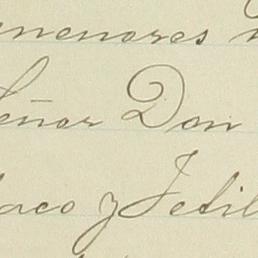 menores
Señor Don
aco y Jetil